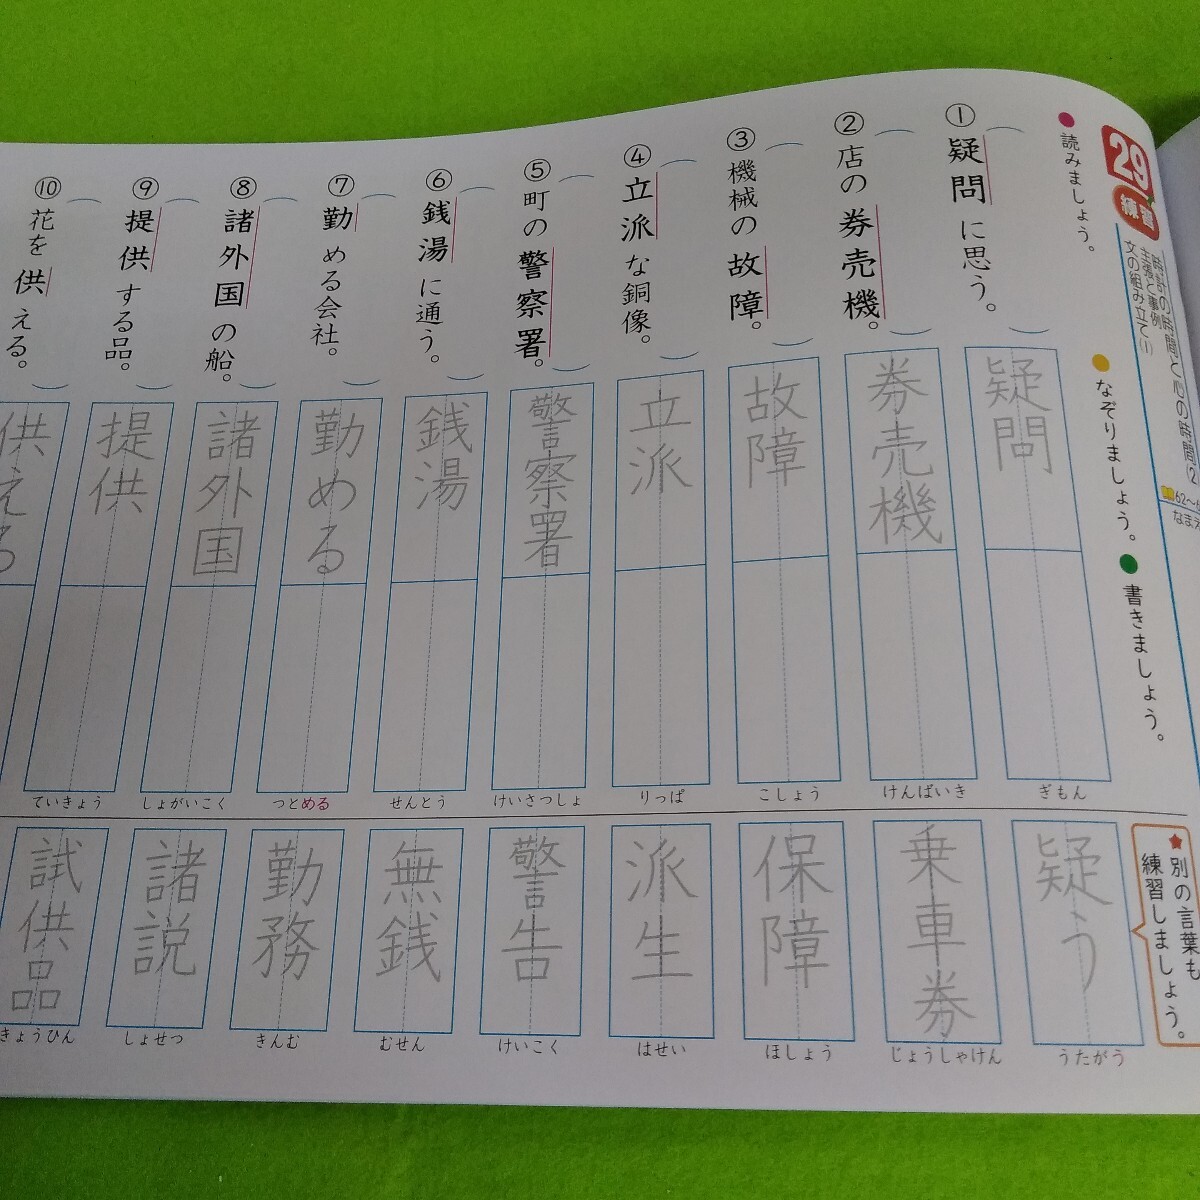 29
練習
時計の時間と心の時間(2)
主張と事例
文の組み立て(1)
62〜6
なまえ
●読みましょう。
●なぞりましょう。
●書きましょう。
①疑問に思う。
②店の券売機。
③機械の故障。
④立派な銅像。
⑤町の警察署。
⑥銭湯に通う。
⑦勤める会社。
⑧諸外国の船。
⑨提供する品。
⑩花を供える。
疑問
ぎもん
券売機
けんばいき
故障
こしょう
立派
りっぱ
警察署
けいさつしょ
銭湯
せんとう
勤める
つとめる
諸外国
しょがいこく
提供
ていきょう
供える
★別の言葉も
練習しましょう。
疑う
うたがう
乗車券
じょうしゃけん
保障
ほしょう
派生
はせい
警告
けいこく
無銭
むせん
勤務
きんむ
諸説
しょせつ
試供品
きょうひん